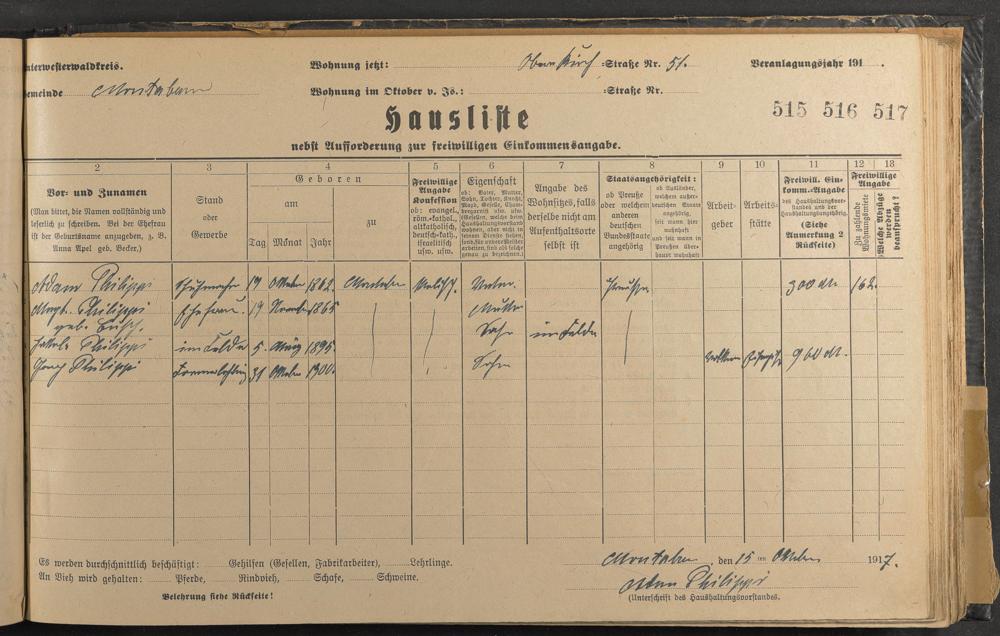 nterwesterwaldkreis.
Wohnung jetzt: Obere Kirch =Straße Nr. 51.
Veranlagungsjahr 191 .
emeinde Montabaur
Wohnung im Oktober v. Js.: =Straße Nr.
515 516 517
Hausliste
nebst Aufforderung zur freiwilligen Einkommensangabe.
2 3 4 5 6 7 8 9 10 11 12 13
Vor- und Zunamen
(Man bittet, die Namen vollständig und
leserlich zu schreiben. Bei der Ehefrau
ist der Geburtsname anzugeben, z. B.
Anna Apel geb. Becker.)
Stand
oder
Gewerbe
Geboren
am
zu
Tag Monat Jahr
Freiwillige
Angabe
Konfession
ob: evangel.,
röm.-kathol.,
altkatholisch,
deutsch-kath.,
israelitisch
usw. usw.
Eigenschaft
ob: Vater, Mutter,
Sohn, Tochter, Knecht,
Magd, Geselle,
Angabe des
Wohnsitzes, falls
derselbe nicht am
Aufenthaltsorte
selbst ist
Staatsangehörigkeit:
ob Preuße
oder welchem
anderen
deutschen
Bundesstaate
angehörig
ob Ausländer,
welchem außer-
deutschen Staate
angehörig,
seit wann hier
wohnhaft
und seit wann in
Preußen über-
haupt wohnhaft
Arbeit-
geber
Arbeits-
stätte
Freiwill. Ein-
komm.-Angabe
des Haushaltungsvor-
standes und der
Haushaltungsangehörig.
(Siehe
Anmerkung 2
Rückseite)
Freiwillige
Angabe
Zu zahlende
Wohnungsmiete
Welche Abzüge
werden
beansprucht?
Adam Philippi 19 Oktober 1862 Montabaur Kathol. Vater Preuße 300 M 162
Margt. Philippi Ehefrau 19 November 1865 Mutter
geb. Sohn im Felde
Jakob Philippi im Felde 5 März 1895
Josef Philippi 31 Oktober 1900 Sohn 900 M.
Es werden durchschnittlich beschäftigt: Gehilfen (Gesellen, Fabrikarbeiter), Lehrlinge.
An Vieh wird gehalten: Pferde, Rindvieh, Schafe, Schweine.
Belehrung siehe Rückseite!
Montabaur den 15 ten Oktober 1917.
Adam Philippi
(Unterschrift des Haushaltungsvorstandes.